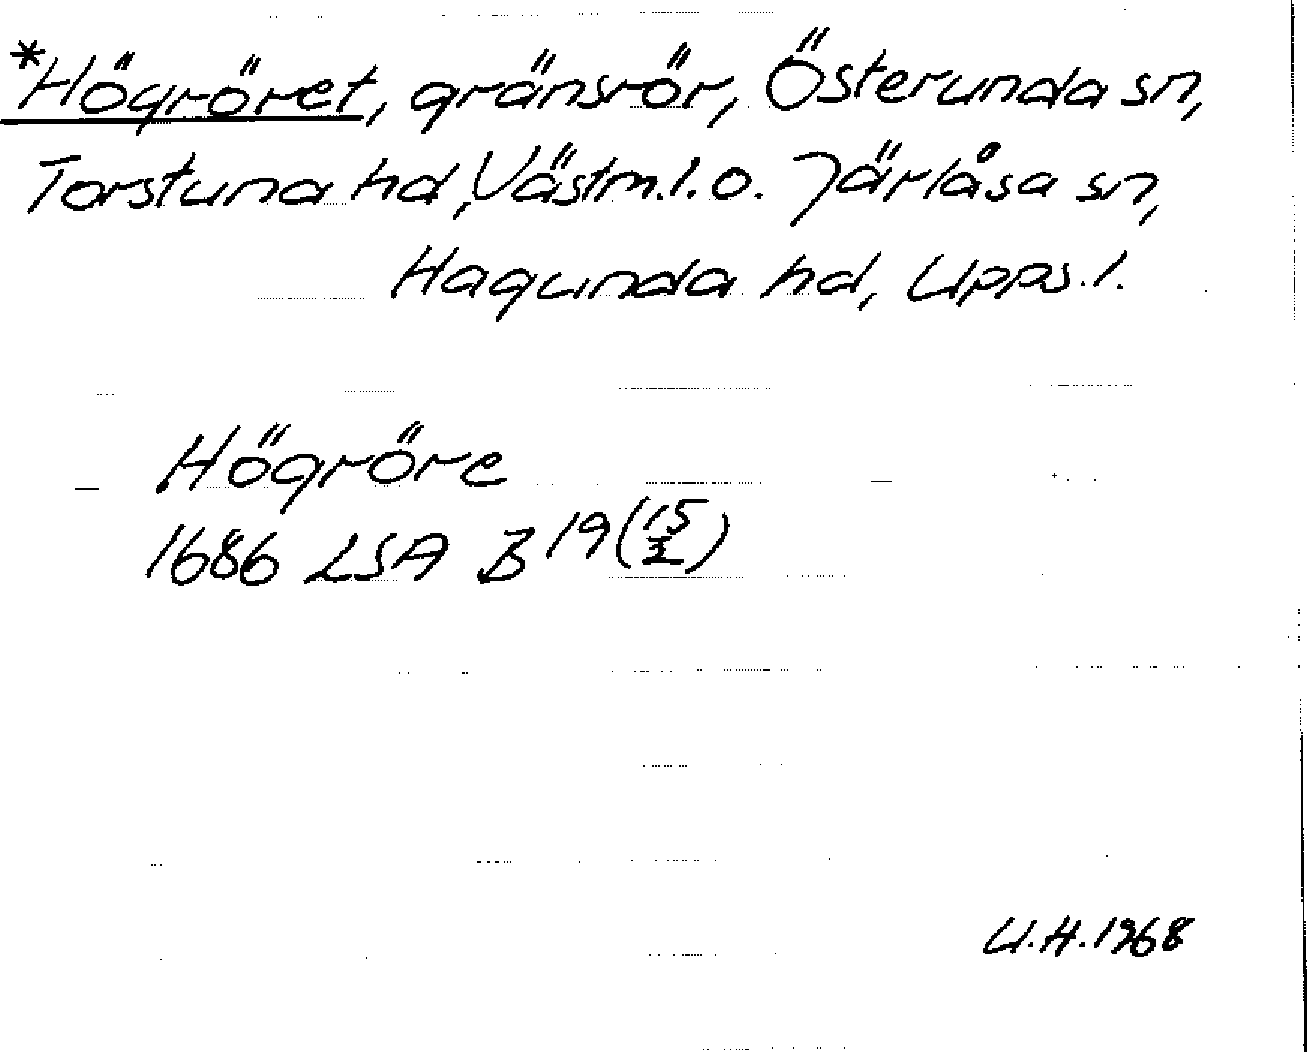 *Högröret, gränsrör, Österunda sn,
Torstuna hd, Västm.l. o. Järlåsa sn,
Hagunda hd, Upps.l.
Högröre
1686 LSA B 19 (15/2)
U.H. 1968